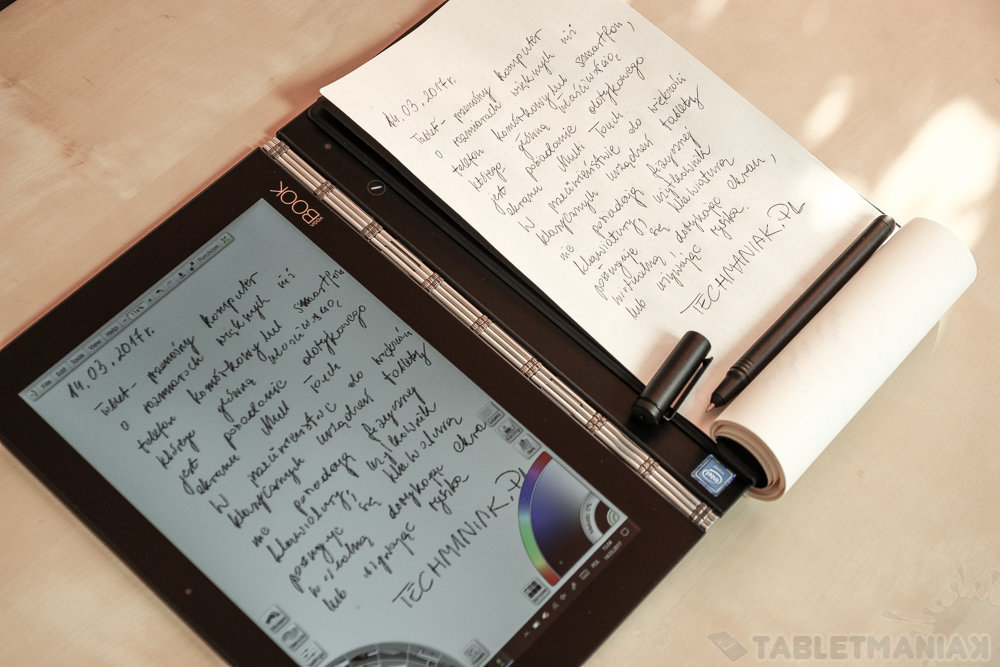 14.03.2017r.
Tablet - przenośny komputer
o rozmiarach większych niż
telefon komórkowy lub smartfon,
którego główną właściwością
jest posiadanie dotykowego
ekranu Multi Touch.
W przeciwieństwie do większości
klasycznych urządzeń tablety
nie posiadają fizycznej
klawiatury, użytkownik
posługuje się klawiaturą
wirtualną, dotykając ekranu,
lub używając rysika.
TECHMANIAK.PL
YOGA BOOK
File Edit Tools View Help
14.03.2017r.
Tablet - przenośny komputer
o rozmiarach większych niż
telefon komórkowy lub smartfon
którego główną właściwością
jest posiadanie dotykowego
ekranu Multi Touch
W przeciwieństwie do większości
klasycznych urządzeń tablety
nie posiadają fizycznej
klawiatury, użytkownik
posługuje się klawiaturą
wirtualną dotykając ekranu
lub używając rysika
TECHMANIAK.PL
intel
TABLETMANIAK